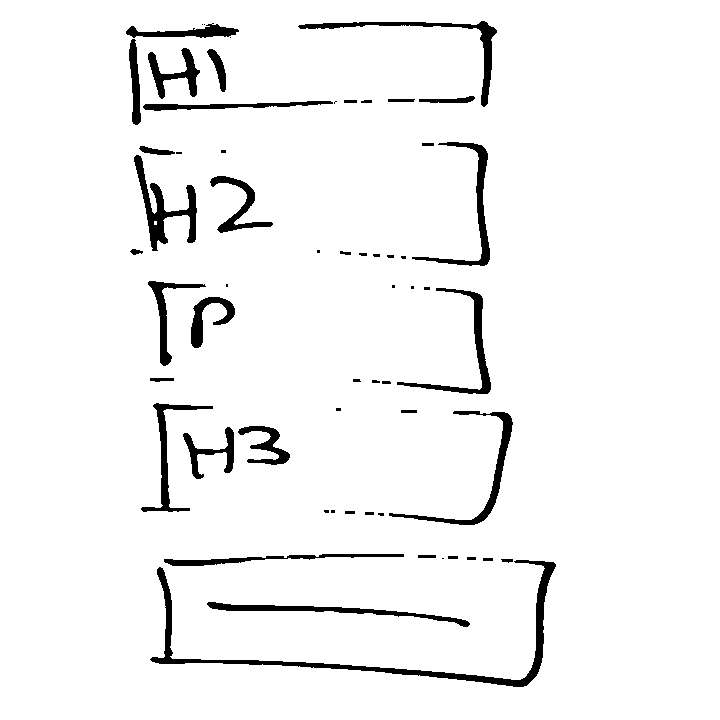 H1
H2
P
H3